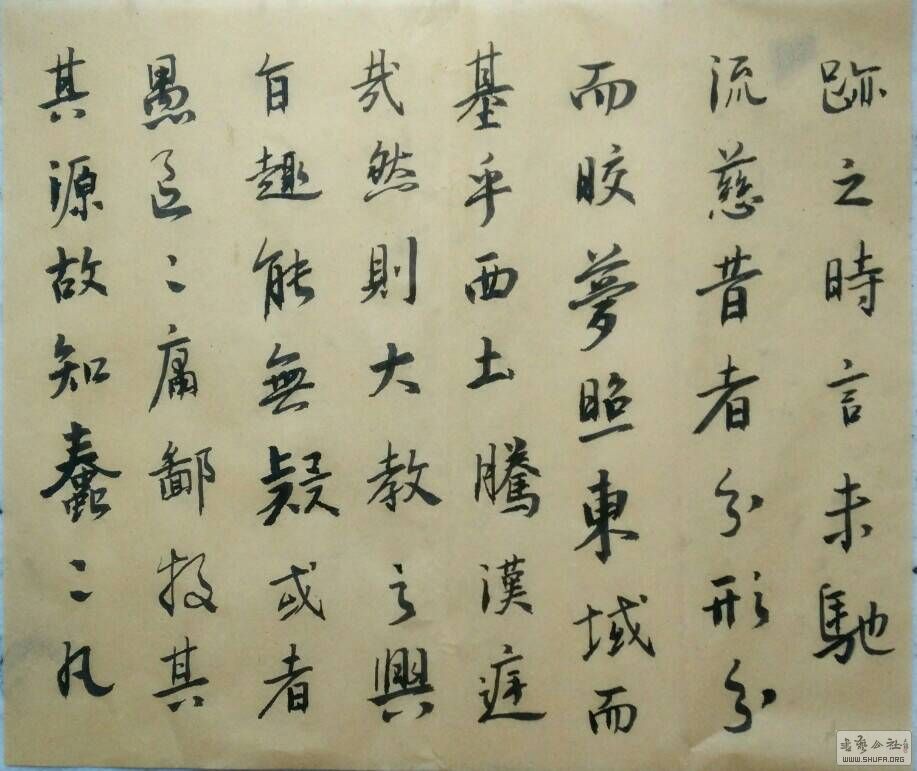 跡之時言未馳
流慈昔者分形分
而晈夢照東域而
基乎西土騰漢庭
哉然則大教之興
旨趣能無疑或者
愚區〻庸鄙投其
其源故知蠢〻凡
书艺公社
WWW.SHUFA.ORG